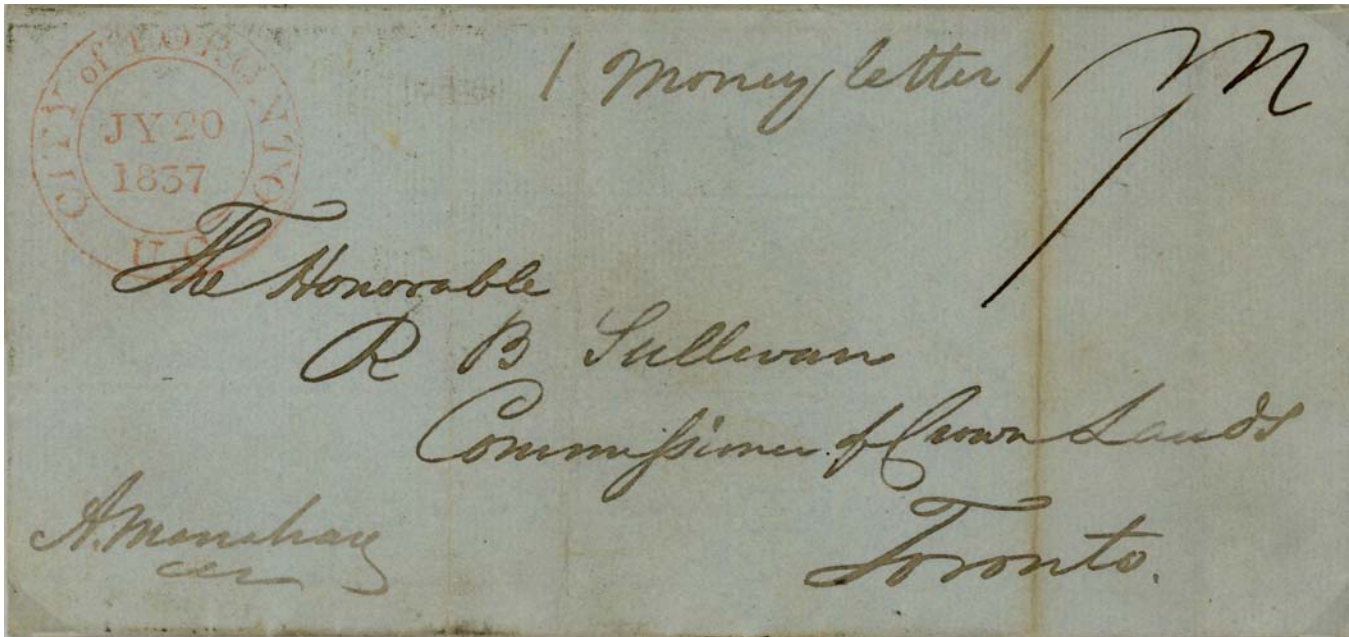 CITY of TORONTO
JY 20
1837
U.C.
Money letter
The Honorable
R B Sullivan
Commissioner of Crown Lands
Toronto.